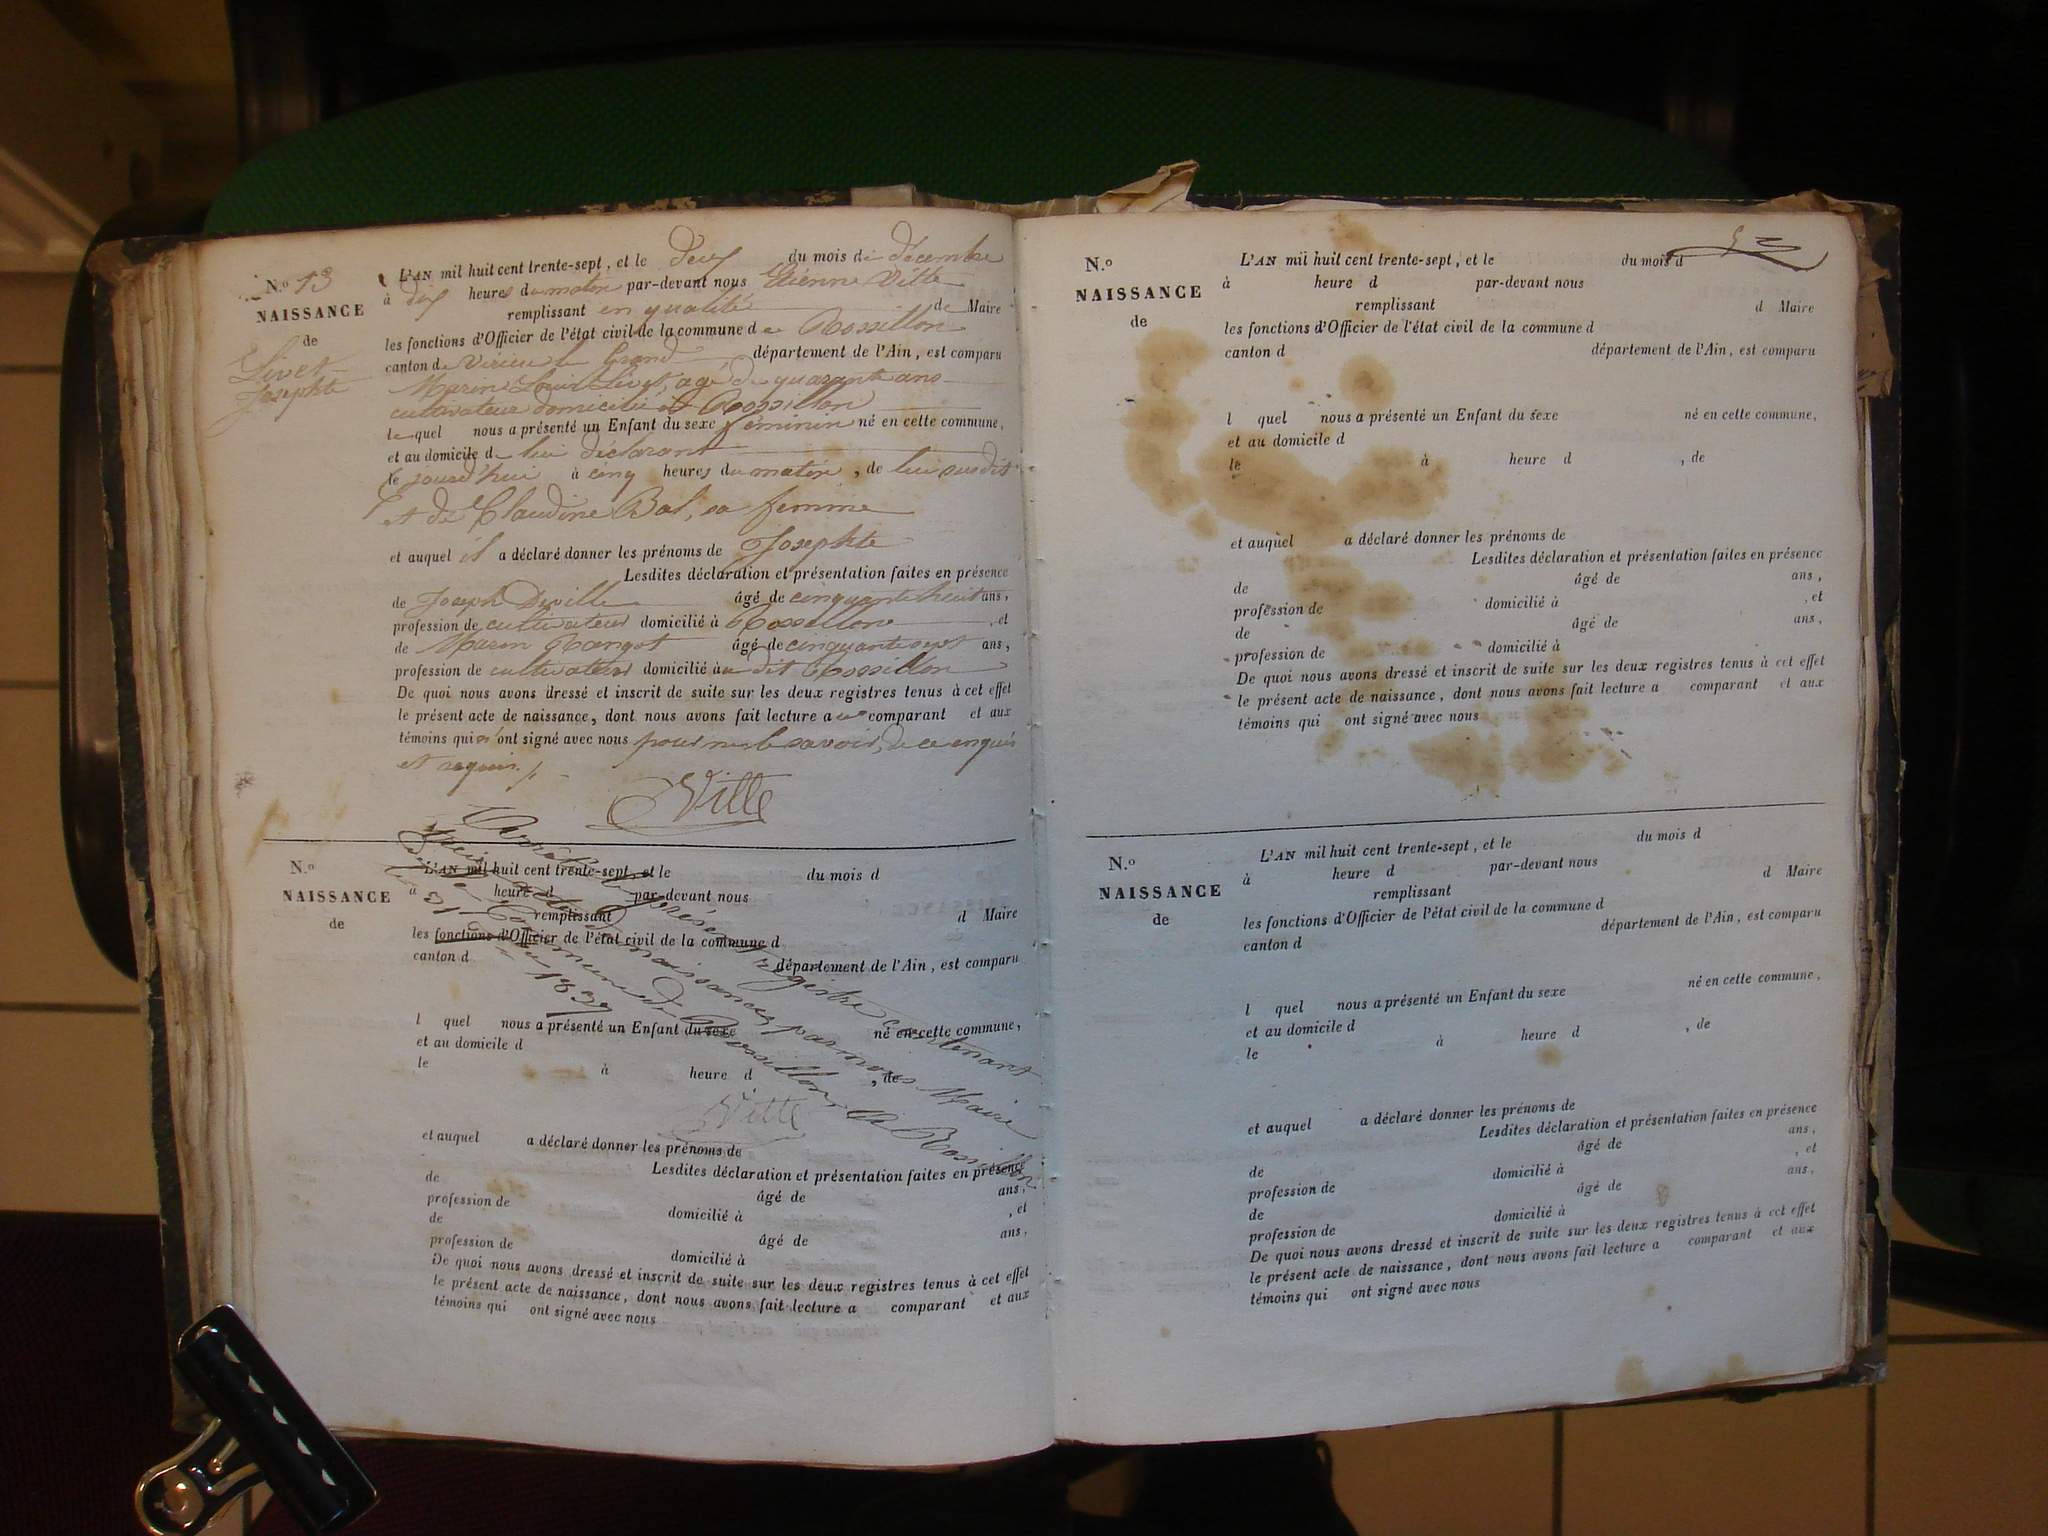 N.º 13
NAISSANCE
de
Livet
Josephte
L'AN mil huit cent trente-sept, et le deux du mois de décembre
à dix heures du matin par-devant nous Etienne Vitte
remplissant en qualité de Maire
les fonctions d'Officier de l'état civil de la commune de Rossillon
canton de Virieu le Grand département de l'Ain, est comparu
Marin Louis Livet, agé de quarante ans
cultivateur domicilié à Rossillon
lequel nous a présenté un Enfant du sexe féminin né en cette commune,
et au domicile de lui déclarant
le jourd'hui à cinq heures du matin, de lui susdit
et de Claudine Bal, sa femme
et auquel il a déclaré donner les prénoms de Josephte
Lesdites déclaration et présentation faites en présence
de Joseph Deville âgé de cinquante huit ans,
profession de cultivateur domicilié à Rossillon, et
de Marin Mangot âgé de cinquante sept ans,
profession de cultivateur domicilié au dit Rossillon
De quoi nous avons dressé et inscrit de suite sur les deux registres tenus à cet effet
le présent acte de naissance, dont nous avons fait lecture au comparant et aux
témoins qui n'ont signé avec nous pour ne le savoir, de ce enquis
et requis./.
Vitte
N.º
NAISSANCE
de
L'AN mil huit cent trente-sept, et le du mois d
à heure d par-devant nous
remplissant d Maire
les fonctions d'Officier de l'état civil de la commune d
canton d département de l'Ain, est comparu
l quel nous a présenté un Enfant du sexe né en cette commune,
et au domicile d
le à heure d , de
et auquel a déclaré donner les prénoms de
Lesdites déclaration et présentation faites en présence
de âgé de ans,
profession de domicilié à , et
de âgé de ans,
profession de domicilié à
De quoi nous avons dressé et inscrit de suite sur les deux registres tenus à cet effet
le présent acte de naissance, dont nous avons fait lecture a comparant et aux
témoins qui ont signé avec nous
Arrêté le présent registre contenant
treize actes de naissances par nous Maire
de la Commune de Rossillon A Rossillon
le 31 1837
Vitte
N.º
NAISSANCE
de
L'AN mil huit cent trente-sept, et le du mois d
à heure d par-devant nous
remplissant d Maire
les fonctions d'Officier de l'état civil de la commune d
canton d département de l'Ain, est comparu
l quel nous a présenté un Enfant du sexe né en cette commune,
et au domicile d
le à heure d , de
et auquel a déclaré donner les prénoms de
Lesdites déclaration et présentation faites en présence
de âgé de ans,
profession de domicilié à , et
de âgé de ans,
profession de domicilié à
De quoi nous avons dressé et inscrit de suite sur les deux registres tenus à cet effet
le présent acte de naissance, dont nous avons fait lecture a comparant et aux
témoins qui ont signé avec nous
N.º
NAISSANCE
de
L'AN mil huit cent trente-sept, et le du mois d
à heure d par-devant nous
remplissant d Maire
les fonctions d'Officier de l'état civil de la commune d
canton d département de l'Ain, est comparu
l quel nous a présenté un Enfant du sexe né en cette commune,
et au domicile d
le à heure d , de
et auquel a déclaré donner les prénoms de
Lesdites déclaration et présentation faites en présence
de âgé de ans,
profession de domicilié à , et
de âgé de ans,
profession de domicilié à
De quoi nous avons dressé et inscrit de suite sur les deux registres tenus à cet effet
le présent acte de naissance, dont nous avons fait lecture a comparant et aux
témoins qui ont signé avec nous